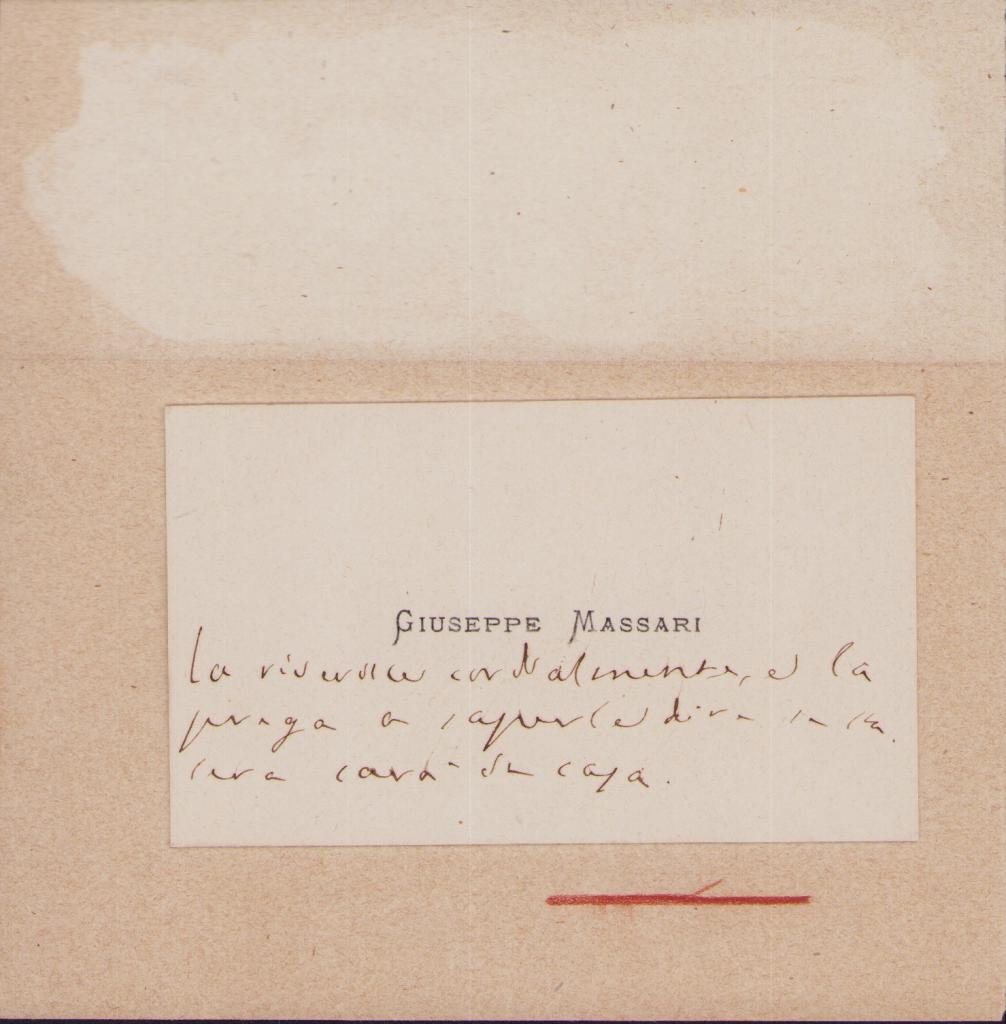 GIUSEPPE MASSARI
La riverisce cordialmente, e la
prega a saperle dire se la
sera sarà in casa.